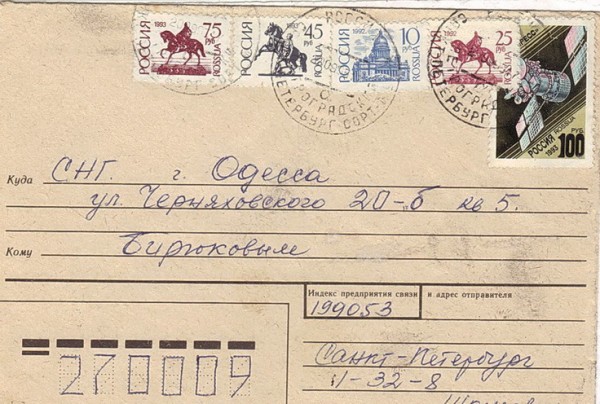 РОССИЯ 1993 75 РУБ ROSSIJA
РОССИЯ 45 РУБ ROSSIJA
РОССИЯ 1992 10 РУБ ROSSIJA
РОССИЯ 25 РУБ ROSSIJA
РОССИЯ ROSSIJA 1993 100 РУБ
Куда СНГ. г. Одесса
ул. Черняховского 20-б кв 5.
Кому Бирюковым
Индекс предприятия связи и адрес отправителя
199053
270009
Санкт-Петербург
-32-8